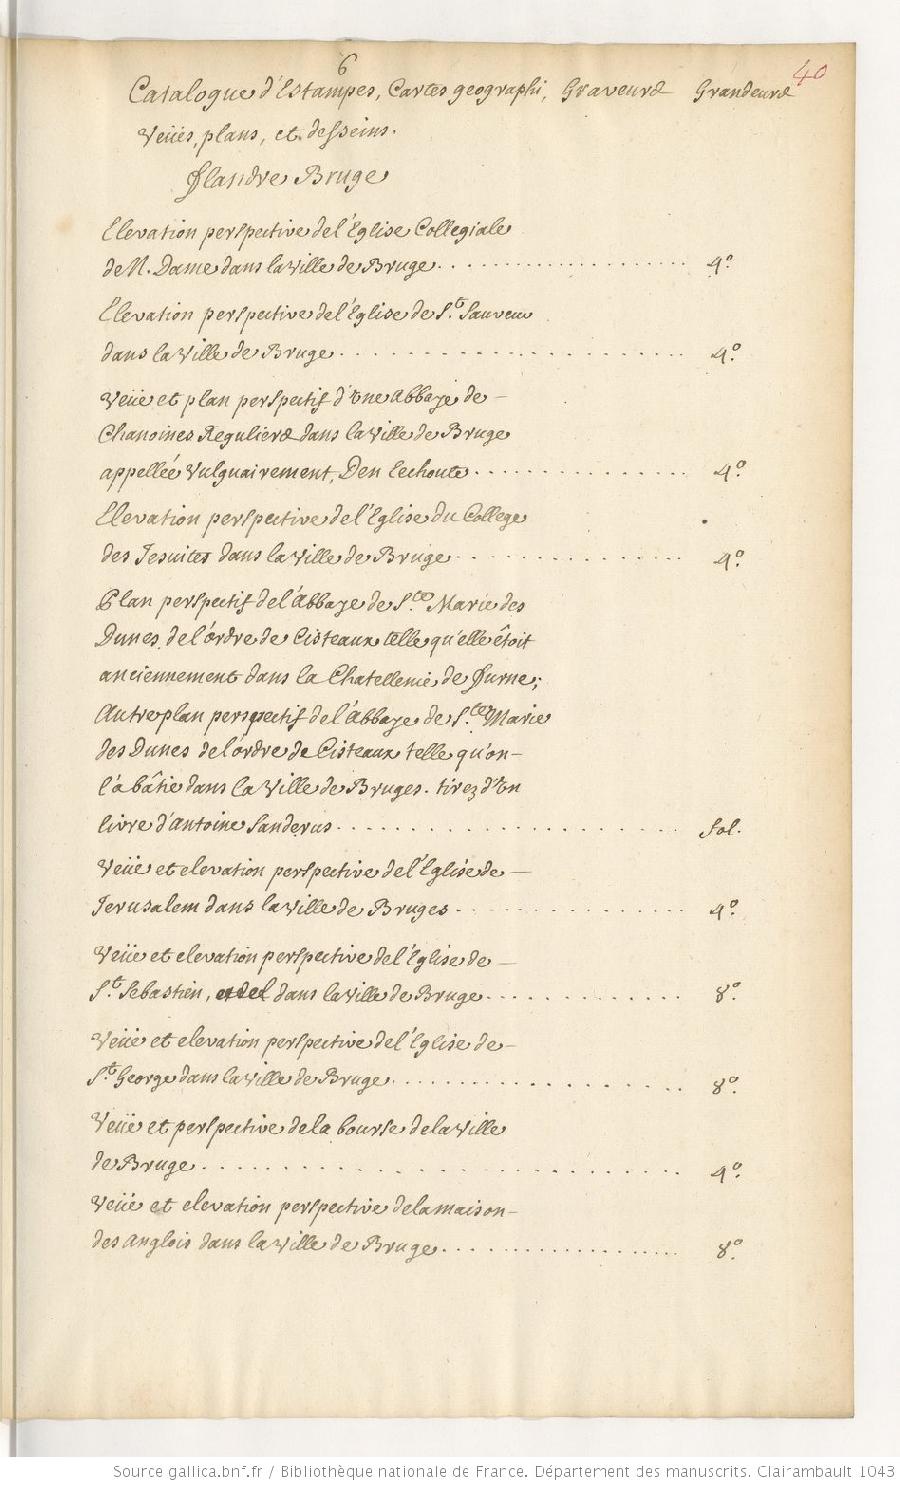 6
40
Catalogue d'Estampes, Cartes geographi, Graveurs Grandeurs
Veües, plans, et desseins.
Flandre Bruge
Elevation perspective de l'Eglise Collegiale
de N. Dame dans la Ville de Bruge. . . . . . . . . . . . . . . . . . . 4.º
Elevation perspective de l'Eglise de S.t Sauveur
dans la Ville de Bruge . . . . . . . . . . . . . . . . . . . . . 4.º
Veüe et plan perspectif d'Une Abbaye de –
Chanoines Reguliers dans la Ville de Bruge
appellée Vulguairement, Den Eechoute . . . . . . . . . . . . . 4.º
Elevation perspective de l'Eglise du College
des Jesuites dans la Ville de Bruge . . . . . . . . . . . . . . 4.º
Plan perspectif de l'Abbaye de S.te Marie des
Dunes, de l'ordre de Cisteaux telle qu'elle êtoit
anciennement dans la Chatellenie de Furne;
Autre plan perspectif de l'Abbaye de S.te Marie
des Dunes de l'ordre de Cisteaux telle qu'on –
l'a bâtie dans la Ville de Bruges. tirez d'Un
livre d'Antoine Sanderus . . . . . . . . . . . . . . . . . . . . fol.
Veüe et elevation perspective de l'Eglise de –
Jerusalem dans la Ville de Bruges . . . . . . . . . . . . . . 4.º
Veüe et elevation perspective de l'Eglise de –
S.t Sebastien, dans la Ville de Bruge . . . . . . . . . . . . 8.º
Veüe et elevation perspective de l'Eglise de –
S.t George dans la Ville de Bruge . . . . . . . . . . . . . . . . 8.º
Veüe et perspective de la bourse de la Ville
de Bruge . . . . . . . . . . . . . . . . . . . . . . . . . . . . 4.º
Veüe et elevation perspective de la maison –
des Anglois dans la Ville de Bruge . . . . . . . . . . . . . . . 8.º
Source gallica.bnf.fr / Bibliothèque nationale de France. Département des manuscrits. Clairambault 1043